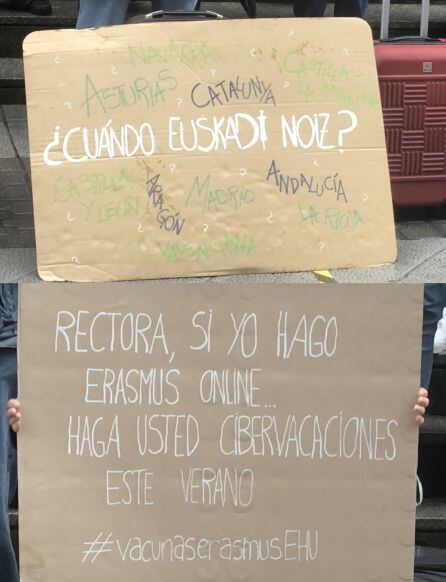 NAVARRA
ASTURIAS CATALUNYA CASTILLA-
LA MANCHA
¿CUÁNDO EUSKADI NOIZ?
CASTILLA
Y LEÓN
ARAGÓN
MADRID
ANDALUCÍA
LA RIOJA
C. VALENCIANA
RECTORA, SI YO HAGO
ERASMUS ONLINE...
HAGA USTED CIBERVACACIONES
ESTE VERANO
#vacunaserasmusEHU